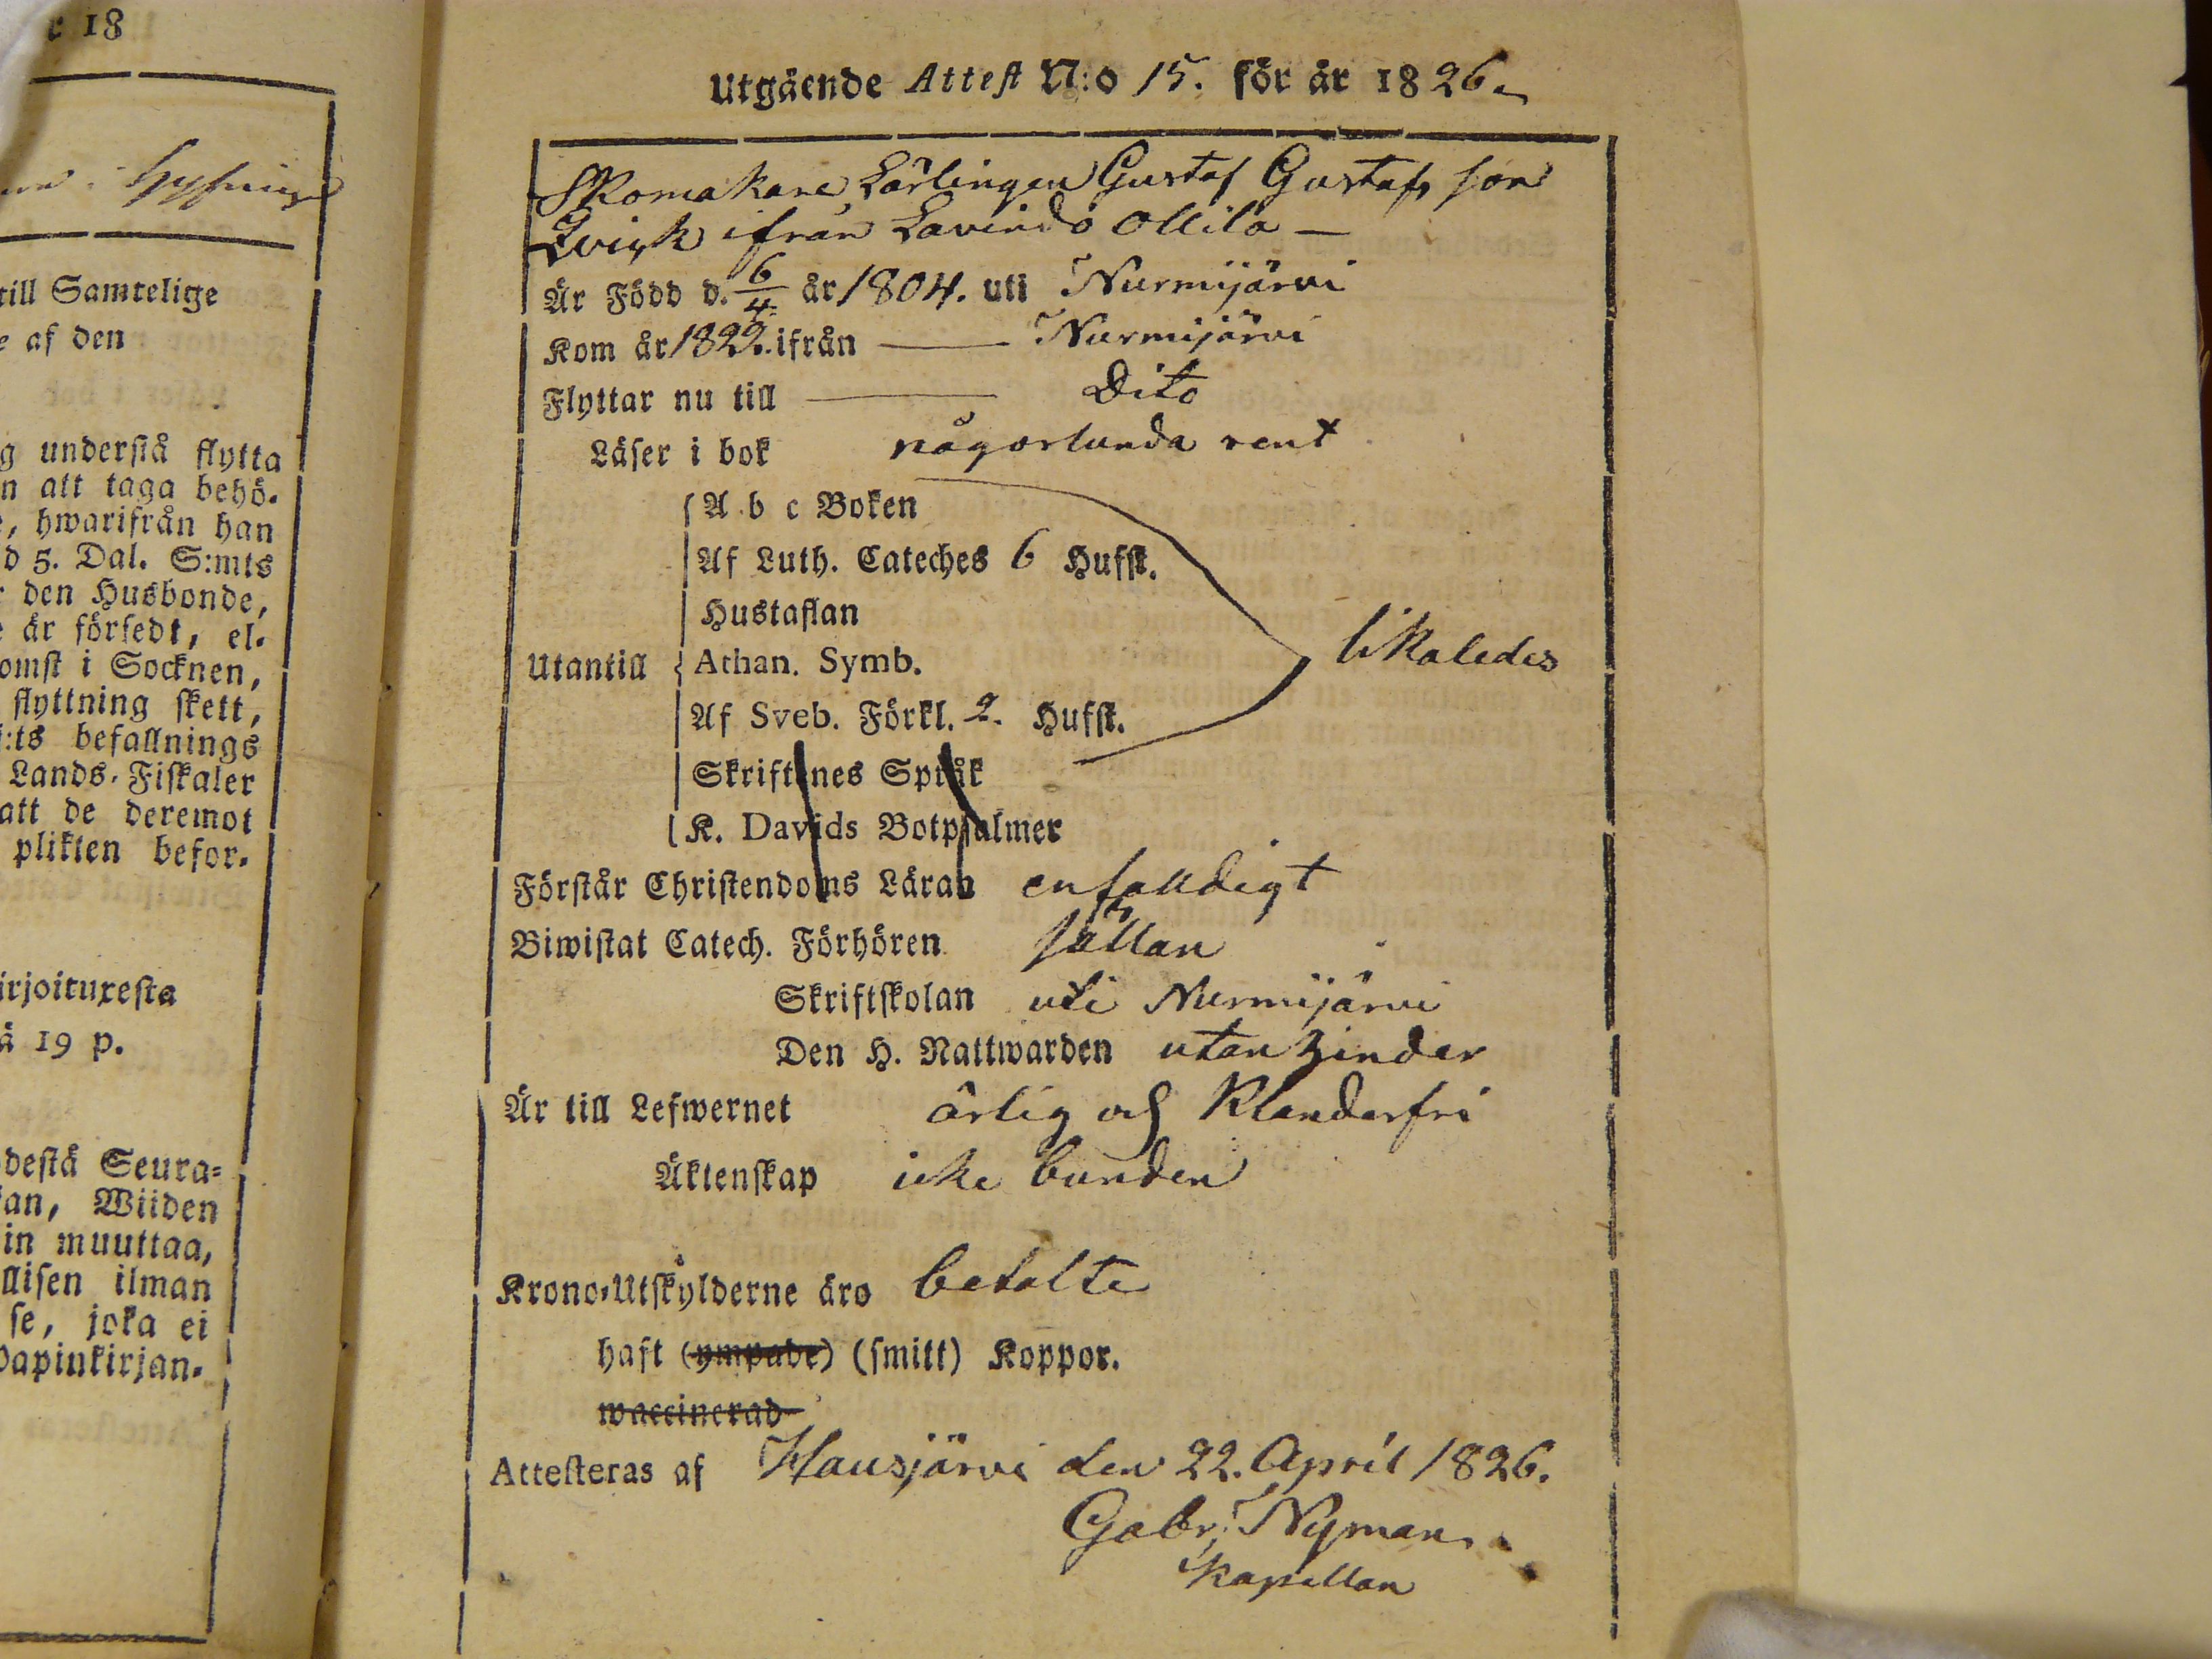 r 18
till Samtelige
e af den
g understå flytta
n att taga behö-
e, hwarifrån han
d 5. Dal. S:mts
r den Husbonde,
e är försedt, el-
omst i Socknen,
flyttning skett,
:ts befallnings
Lands-Fiskaler
att de deremot
plikten befor-
irjoituxesta
ä 19 p.
destä Seura-
an, Wiiden
in muuttaa,
llisen ilman
se, joka ei
Papinkirjan-
Utgående Attest N:o 15. för år 1826.
Skomakare Lärlingen Gustaf Gustafs son
Qvisk ifrån Lavindo Ollila —
Är Född d. 6/4 år 1804. uti Nurmijärvi
Kom år 1822. ifrån — Nurmijärvi
Flyttar nu till — Dito
Läser i bok någorlunda rent
A b c Boken
Af Luth. Cateches 6 Hufst.
Hustaflan
Utantill Athan. Symb. likaledes
Af Sveb. Förkl. 2. Hufst.
Skriftenes Språk
K. Davids Botpsalmer
Förstår Christendoms Läran enfalldigt
Biwistat Catech. Förhören sällan
Skriftskolan uti Nurmijärvi
Den H. Nattwarden utan hinder
Är till Lefwernet ärlig och Klanderfri
Äktenskap icke bunden
Krono-Utskylderne äro betalte
haft (ympade) (smitt) Koppor.
waccinerad
Attesteras af Hausjärvi den 22. April 1826.
Gabr. Nyman
Kapellan